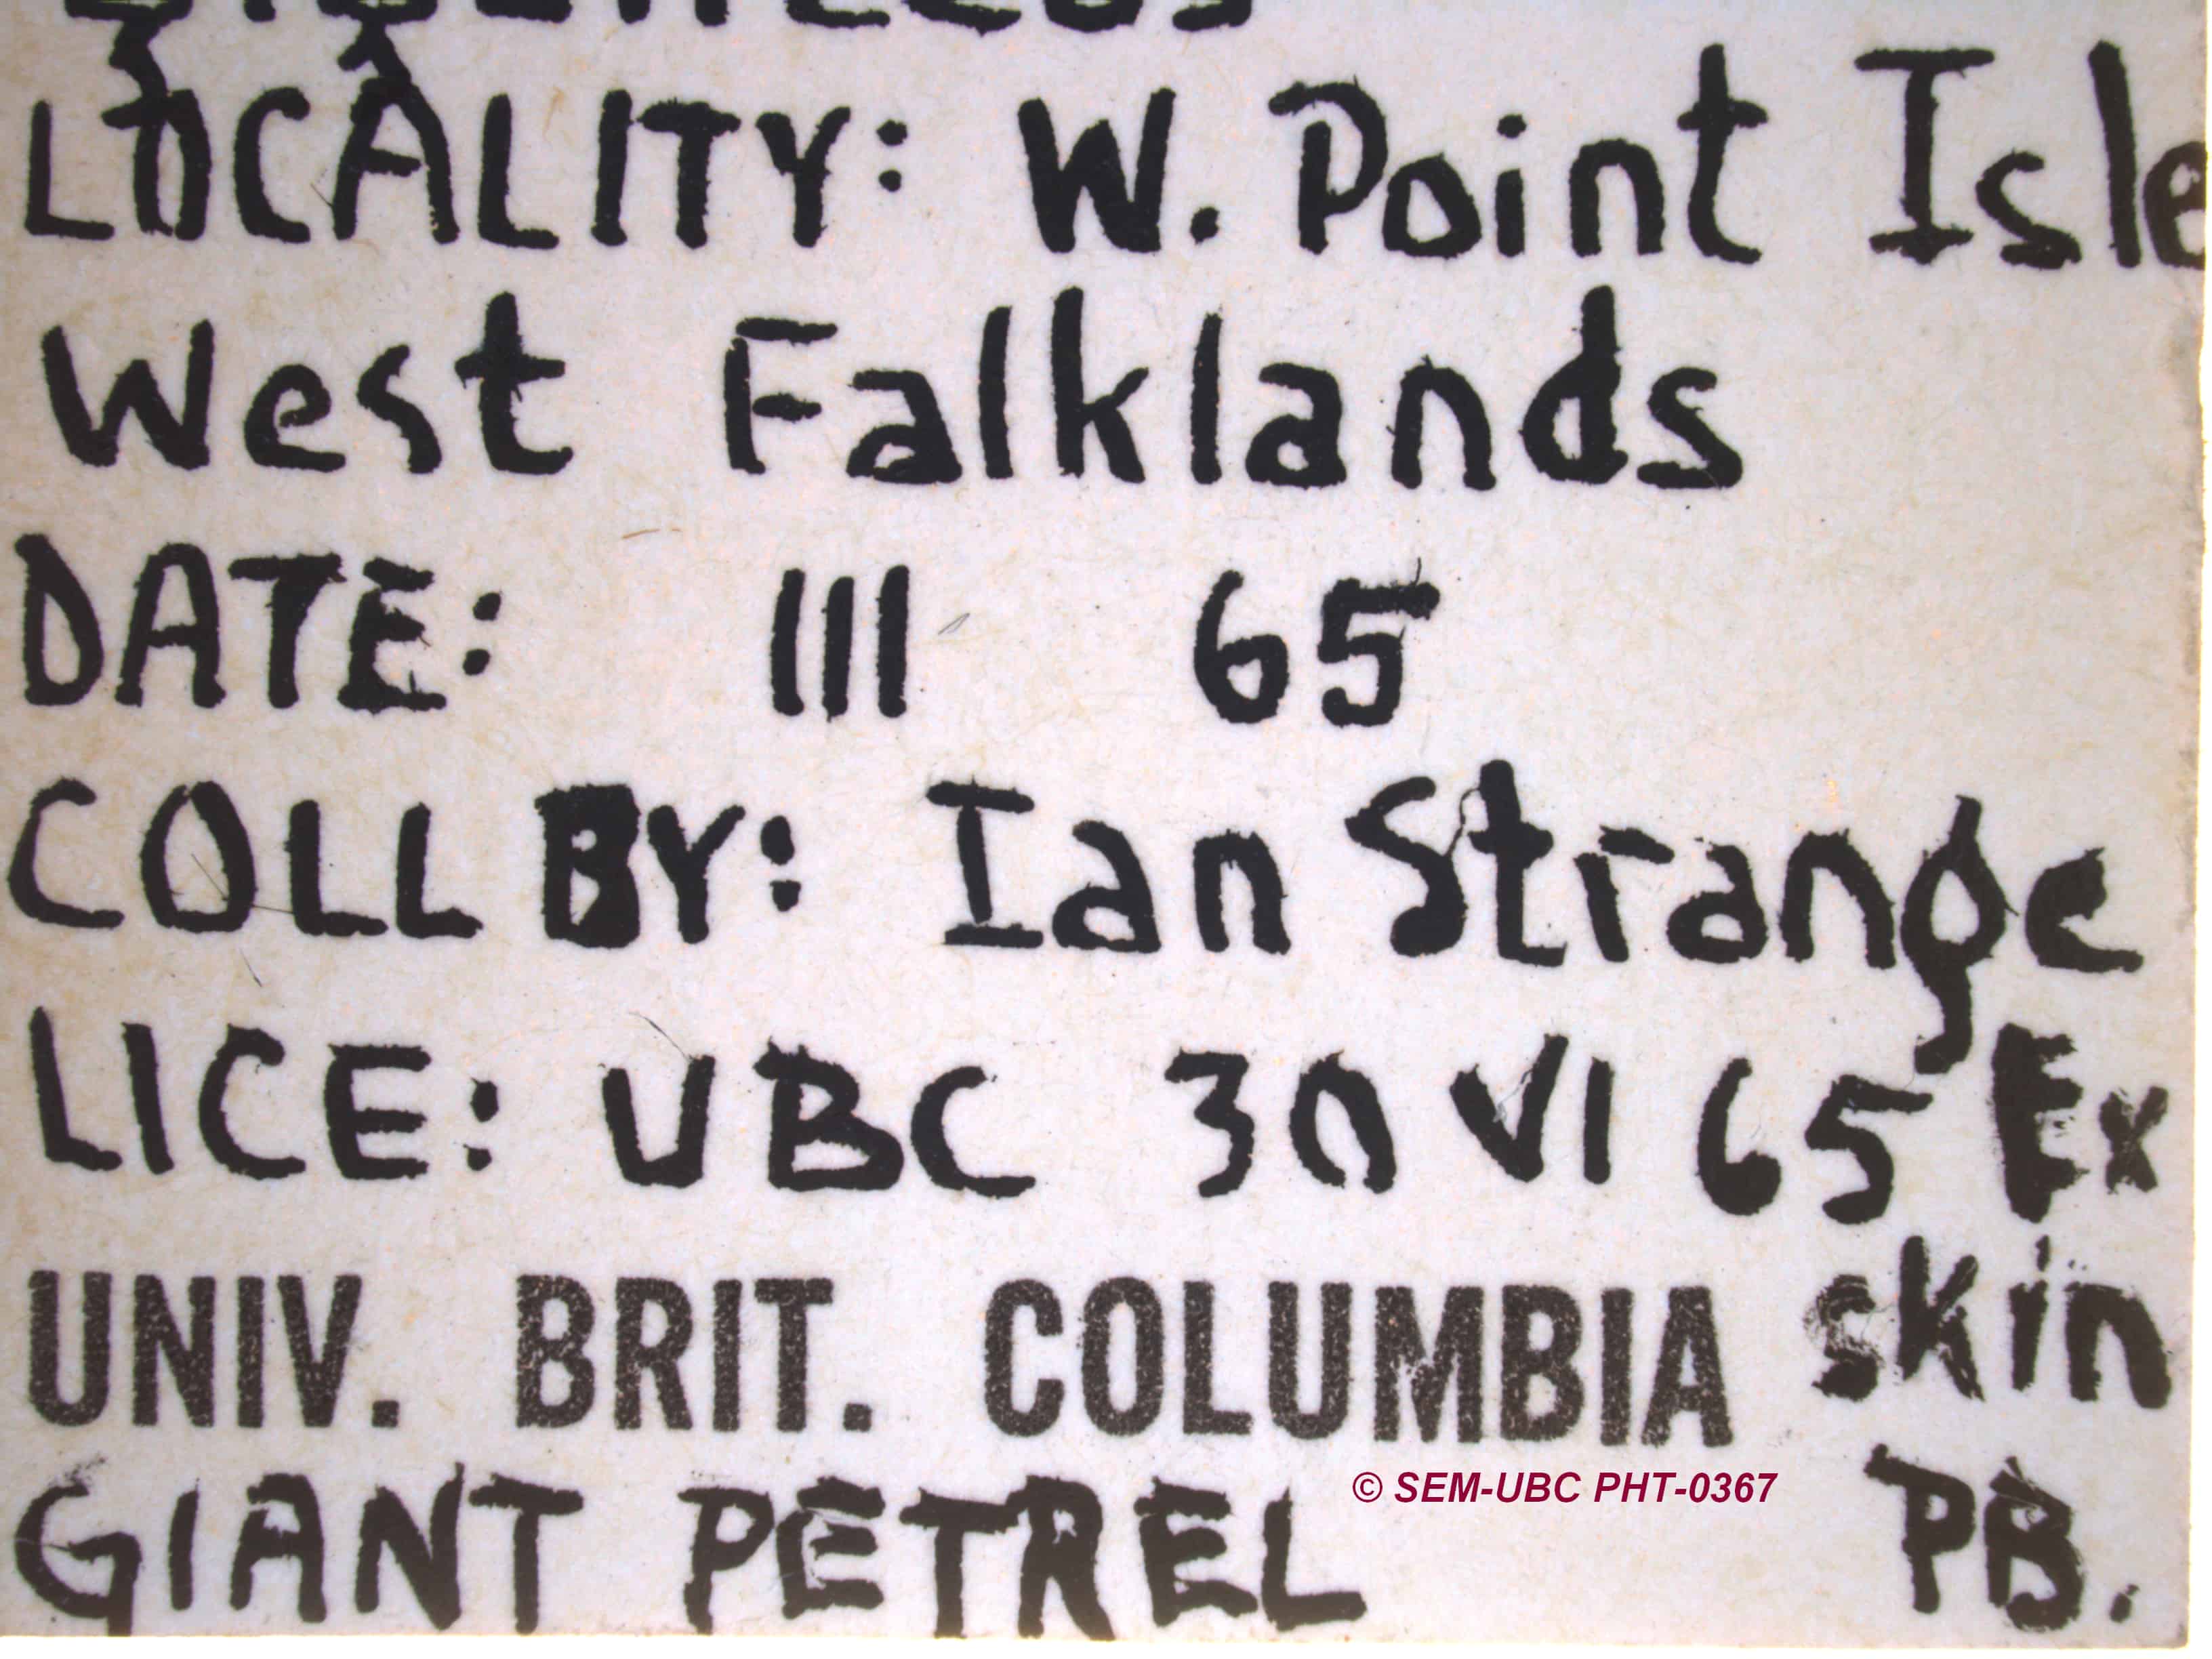 LOCALITY: W. Point Isle
West Falklands
DATE: III 65
COLL BY: Ian Strange
LICE: UBC 30 VI 65 Ex
UNIV. BRIT. COLUMBIA skin
© SEM-UBC PHT-0367
GIANT PETREL PB.